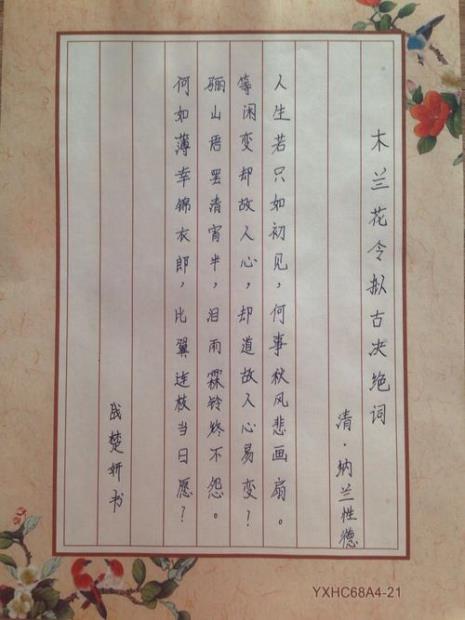 木兰花令拟古决绝词
清·纳兰性德
人生若只如初见，何事秋风悲画扇。
等闲变却故人心，却道故人心易变？
骊山语罢清宵半，泪雨霖铃终不怨。
何如薄幸锦衣郎，比翼连枝当日愿？
成楚妍书
YXHC68A4-21